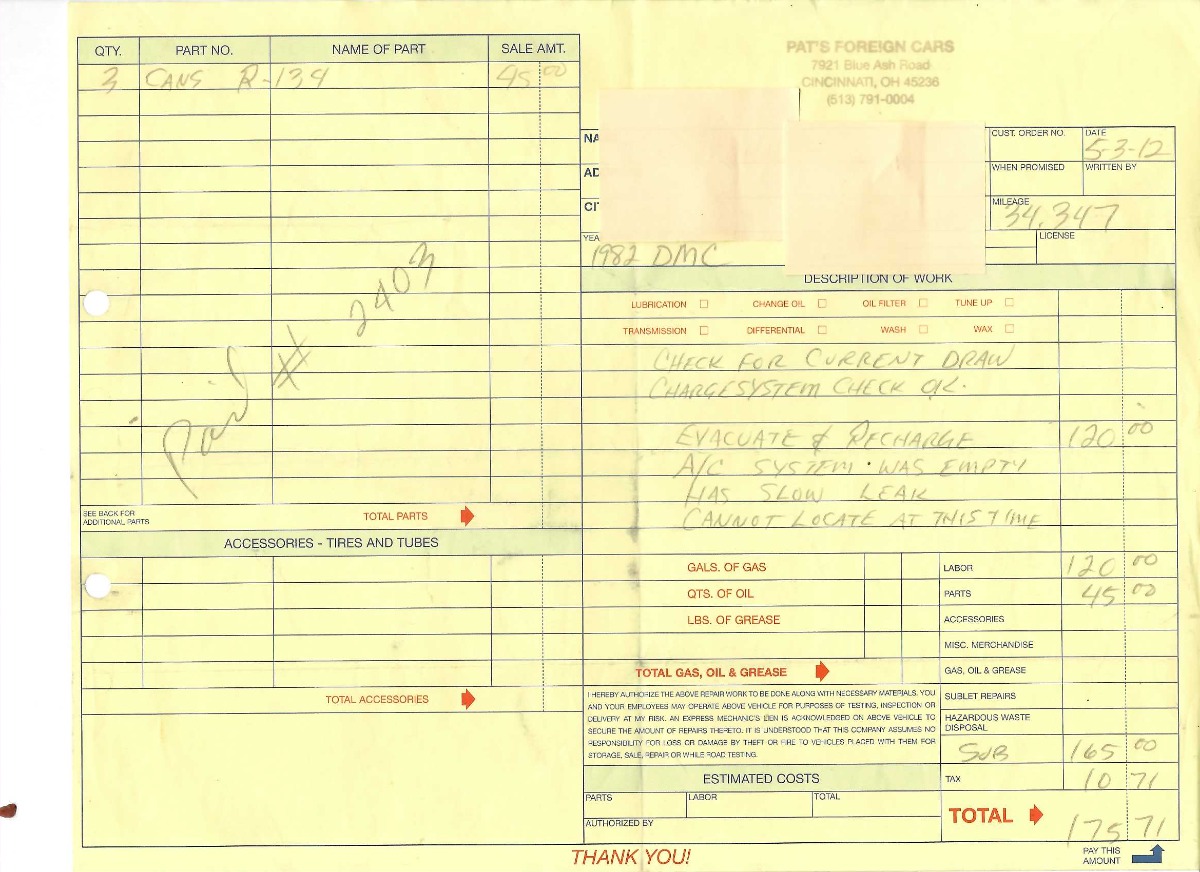 PAT'S FOREIGN CARS
7921 Blue Ash Road
CINCINNATI, OH 45236
(513) 791-0004
QTY. PART NO. NAME OF PART SALE AMT.
3 CANS R-134 45 00
Paid # 2403
SEE BACK FOR
ADDITIONAL PARTS
TOTAL PARTS
ACCESSORIES - TIRES AND TUBES
TOTAL ACCESSORIES
NA
AD
CI
YEA
1982 DMC
CUST. ORDER NO. DATE
5-3-12
WHEN PROMISED WRITTEN BY
MILEAGE
34,347
LICENSE
DESCRIPTION OF WORK
LUBRICATION CHANGE OIL OIL FILTER TUNE UP
TRANSMISSION DIFFERENTIAL WASH WAX
CHECK FOR CURRENT DRAW
CHARGESYSTEM CHECK OK.
EVACUATE & RECHARGE 120 00
A/C SYSTEM · WAS EMPTY
HAS SLOW LEAK
CANNOT LOCATE AT THIS TIME
GALS. OF GAS LABOR 120 00
QTS. OF OIL PARTS 45 00
LBS. OF GREASE ACCESSORIES
MISC. MERCHANDISE
TOTAL GAS, OIL & GREASE GAS, OIL & GREASE
I HEREBY AUTHORIZE THE ABOVE REPAIR WORK TO BE DONE ALONG WITH NECESSARY MATERIALS. YOU
AND YOUR EMPLOYEES MAY OPERATE ABOVE VEHICLE FOR PURPOSES OF TESTING, INSPECTION OR
DELIVERY AT MY RISK. AN EXPRESS MECHANIC'S LIEN IS ACKNOWLEDGED ON ABOVE VEHICLE TO
SECURE THE AMOUNT OF REPAIRS THERETO. IT IS UNDERSTOOD THAT THIS COMPANY ASSUMES NO
RESPONSIBILITY FOR LOSS OR DAMAGE BY THEFT OR FIRE TO VEHICLES PLACED WITH THEM FOR
STORAGE, SALE, REPAIR OR WHILE ROAD TESTING.
SUBLET REPAIRS
HAZARDOUS WASTE
DISPOSAL
SUB 165 00
ESTIMATED COSTS
TAX 10 71
PARTS LABOR TOTAL
AUTHORIZED BY
TOTAL 175 71
THANK YOU!
PAY THIS
AMOUNT